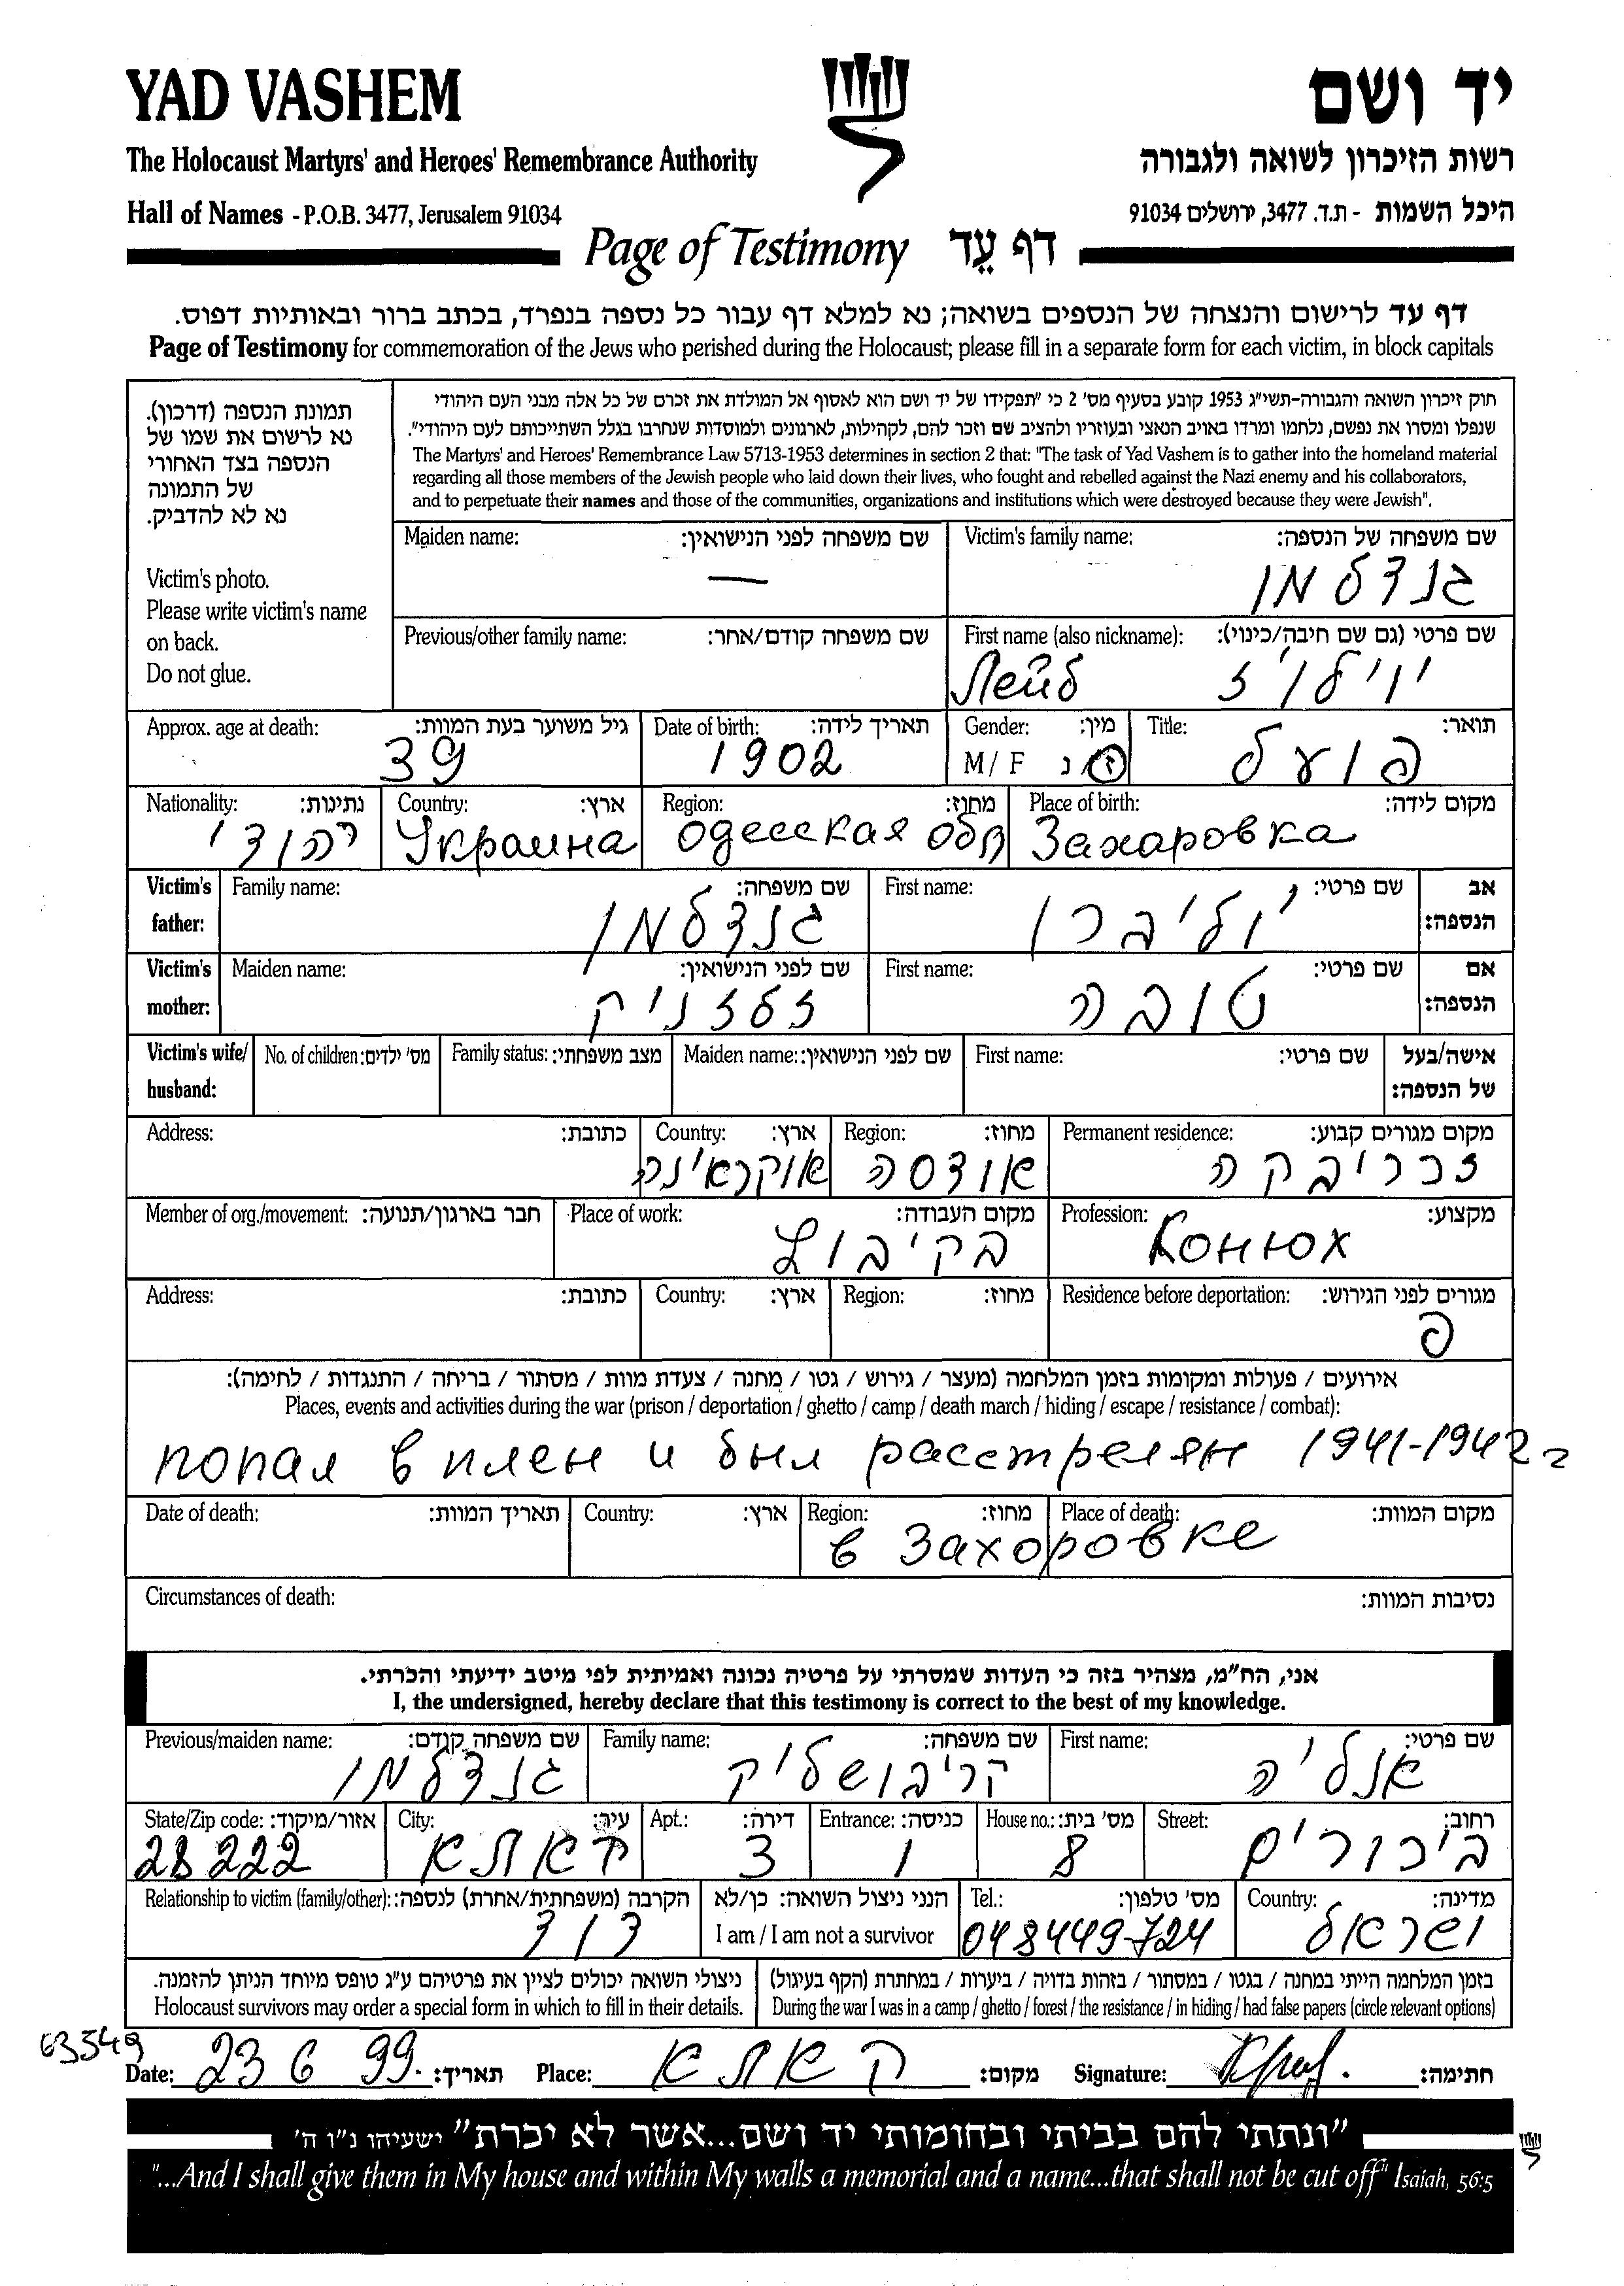 YAD VASHEM
יד ושם
The Holocaust Martyrs' and Heroes' Remembrance Authority
רשות הזיכרון לשואה ולגבורה
Hall of Names - P.O.B. 3477, Jerusalem 91034
היכל השמות - ת.ד. 3477, ירושלים 91034
Page of Testimony דף עֵד
דף עד לרישום והנצחה של הנספים בשואה; נא למלא דף עבור כל נספה בנפרד, בכתב ברור ובאותיות דפוס.
Page of Testimony for commemoration of the Jews who perished during the Holocaust; please fill in a separate form for each victim, in block capitals
תמונת הנספה (דרכון).
נא לרשום את שמו של
הנספה בצד האחורי
של התמונה
נא לא להדביק.
Victim's photo.
Please write victim's name
on back.
Do not glue.
חוק זיכרון השואה והגבורה-תשי"ג 1953 קובע בסעיף מס' 2 כי "תפקידו של יד ושם הוא לאסוף אל המולדת את זכרם של כל אלה מבני העם היהודי
שנפלו ומסרו את נפשם, נלחמו ומרדו באויב הנאצי ובעוזריו ולהציב שם וזכר להם, לקהילות, לארגונים ולמוסדות שנחרבו בגלל השתייכותם לעם היהודי".
The Martyrs' and Heroes' Remembrance Law 5713-1953 determines in section 2 that: "The task of Yad Vashem is to gather into the homeland material
regarding all those members of the Jewish people who laid down their lives, who fought and rebelled against the Nazi enemy and his collaborators,
and to perpetuate their names and those of the communities, organizations and institutions which were destroyed because they were Jewish".
Maiden name: שם משפחה לפני הנישואין:
—
Victim's family name: שם משפחה של הנספה:
גנדלמן
Previous/other family name: שם משפחה קודם/אחר:
First name (also nickname): שם פרטי (גם שם חיבה/כינוי):
Лейб
Approx. age at death: גיל משוער בעת המוות:
39
Date of birth: תאריך לידה:
1902
Gender: מין:
M / F ז/נ
Title: תואר:
פועל
Nationality: נתינות:
יהודי
Country: ארץ:
Украина
Region: מחוז:
одесская обл
Place of birth: מקום לידה:
Захаровка
Victim's father:
Family name: שם משפחה:
גנדלמן
First name: שם פרטי:
אב הנספה:
Victim's mother:
Maiden name: שם לפני הנישואין:
First name: שם פרטי:
טובה
אם הנספה:
Victim's wife/ husband:
No. of children: מס' ילדים:
Family status: מצב משפחתי:
Maiden name: שם לפני הנישואין:
First name: שם פרטי:
אישה/בעל של הנספה:
Address: כתובת:
Country: ארץ:
אוקראינה
Region: מחוז:
אודסה
Permanent residence: מקום מגורים קבוע:
זכריבקה
Member of org./movement: חבר בארגון/תנועה:
Place of work: מקום העבודה:
בקיבוץ
Profession: מקצוע:
Конюх
Address: כתובת:
Country: ארץ:
Region: מחוז:
Residence before deportation: מגורים לפני הגירוש:
אירועים / פעולות ומקומות בזמן המלחמה (מעצר / גירוש / גטו / מחנה / צעדת מוות / מסתור / בריחה / התנגדות / לחימה):
Places, events and activities during the war (prison / deportation / ghetto / camp / death march / hiding / escape / resistance / combat):
попал в плен и был расстрелян 1941-1942 г
Date of death: תאריך המוות:
Country: ארץ:
Region: מחוז:
Place of death: מקום המוות:
в Захоровке
Circumstances of death: נסיבות המוות:
אני, הח"מ, מצהיר בזה כי העדות שמסרתי על פרטיה נכונה ואמיתית לפי מיטב ידיעתי והכרתי.
I, the undersigned, hereby declare that this testimony is correct to the best of my knowledge.
Previous/maiden name: שם משפחה קודם:
גנדלמן
Family name: שם משפחה:
קריבושליק
First name: שם פרטי:
אנליה
State/Zip code: אזור/מיקוד:
28222
City: עיר:
ק אתא
Apt.: דירה:
3
Entrance: כניסה:
1
House no.: מס' בית:
8
Street: רחוב:
ביכורים
Relationship to victim (family/other): הקרבה (משפחתית/אחרת) לנספה:
דוד
הנני ניצול השואה: כן/לא
I am / I am not a survivor
Tel.: מס' טלפון:
048449724
Country: מדינה:
ישראל
ניצולי השואה יכולים לציין את פרטיהם ע"ג טופס מיוחד הניתן להזמנה.
Holocaust survivors may order a special form in which to fill in their details.
בזמן המלחמה הייתי במחנה / בגטו / במסתור / בזהות בדויה / ביערות / במחתרת (הקף בעיגול)
During the war I was in a camp / ghetto / forest / the resistance / in hiding / had false papers (circle relevant options)
63549
Date: 23 6 99. תאריך: Place: ק אתא מקום: Signature: חתימה:
"ונתתי להם בביתי ובחומותי יד ושם...אשר לא יכרת" ישעיהו נ"ו ה'
"...And I shall give them in My house and within My walls a memorial and a name...that shall not be cut off" Isaiah, 56:5